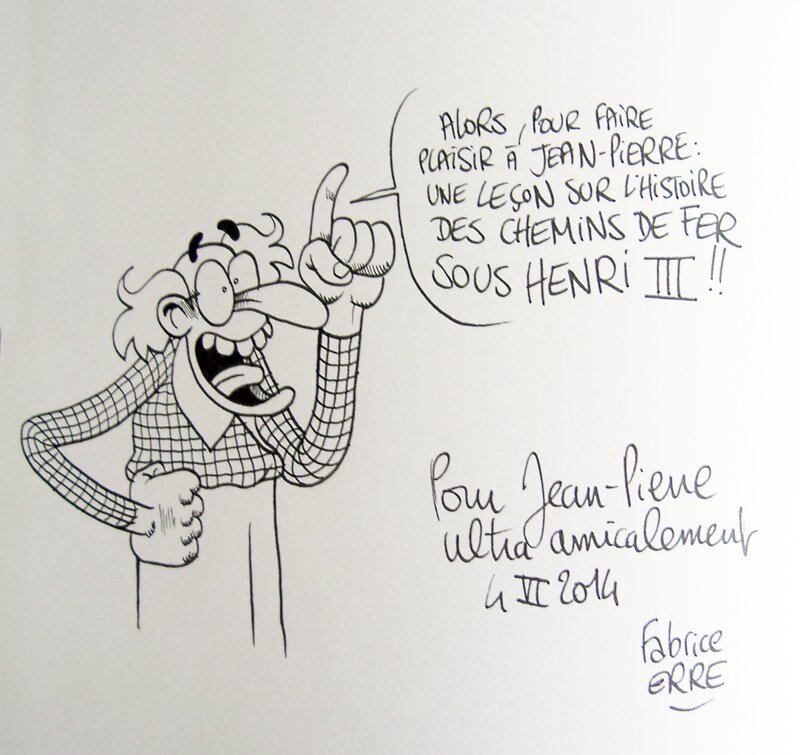 ALORS, POUR FAIRE
PLAISIR À JEAN-PIERRE:
UNE LEÇON SUR L'HISTOIRE
DES CHEMINS DE FER
SOUS HENRI III !!
Pour Jean-Pierre
ultra amicalement
4 VI 2014
Fabrice
ERRE